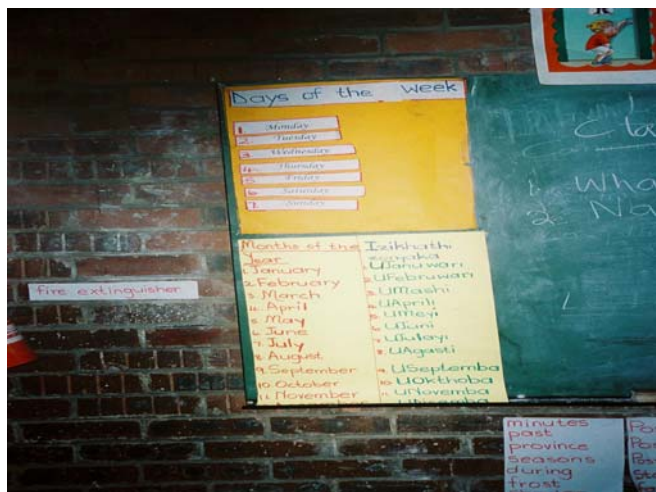 Days of the week
1. Monday
2. Tuesday
3. Wednesday
4. Thursday
5. Friday
6. Saturday
7. Sunday
Months of the
Year
1. January
2. February
3. March
4. April
5. May
6. June
7. July
8. August
9. September
10. October
11. November
Izikhathi
zonyaka
1. UJanuwari
2. UFebruwari
3. UMashi
4. UAprili
5. UMeyi
6. UJuni
7. UJulayi
8. UAgasti
9. USeptemba
10. UOkthoba
11. UNovemba
fire extinguisher
1. Wha
2. Na
minutes
past
province
seasons
during
frost